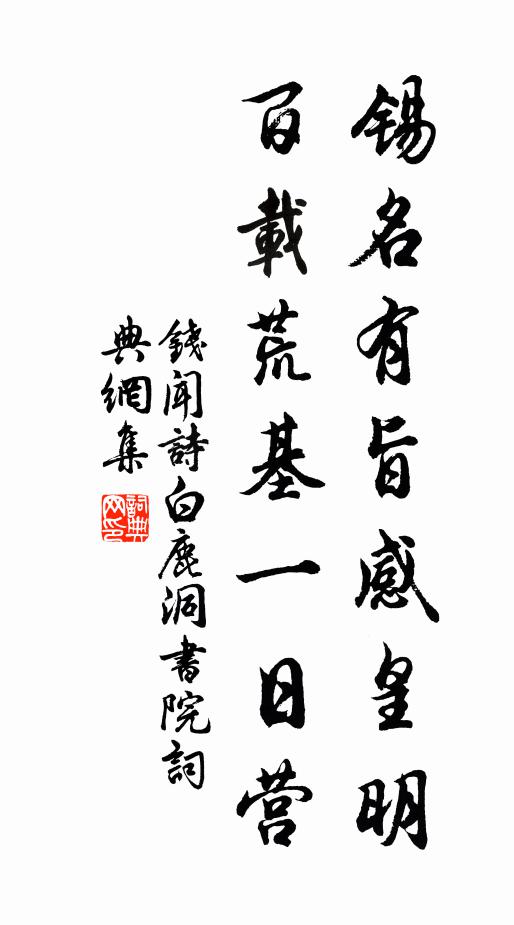 锡名有旨感皇明
百載荒基一日营
錢聞詩白鹿洞書院詞
典網集
詞典网印